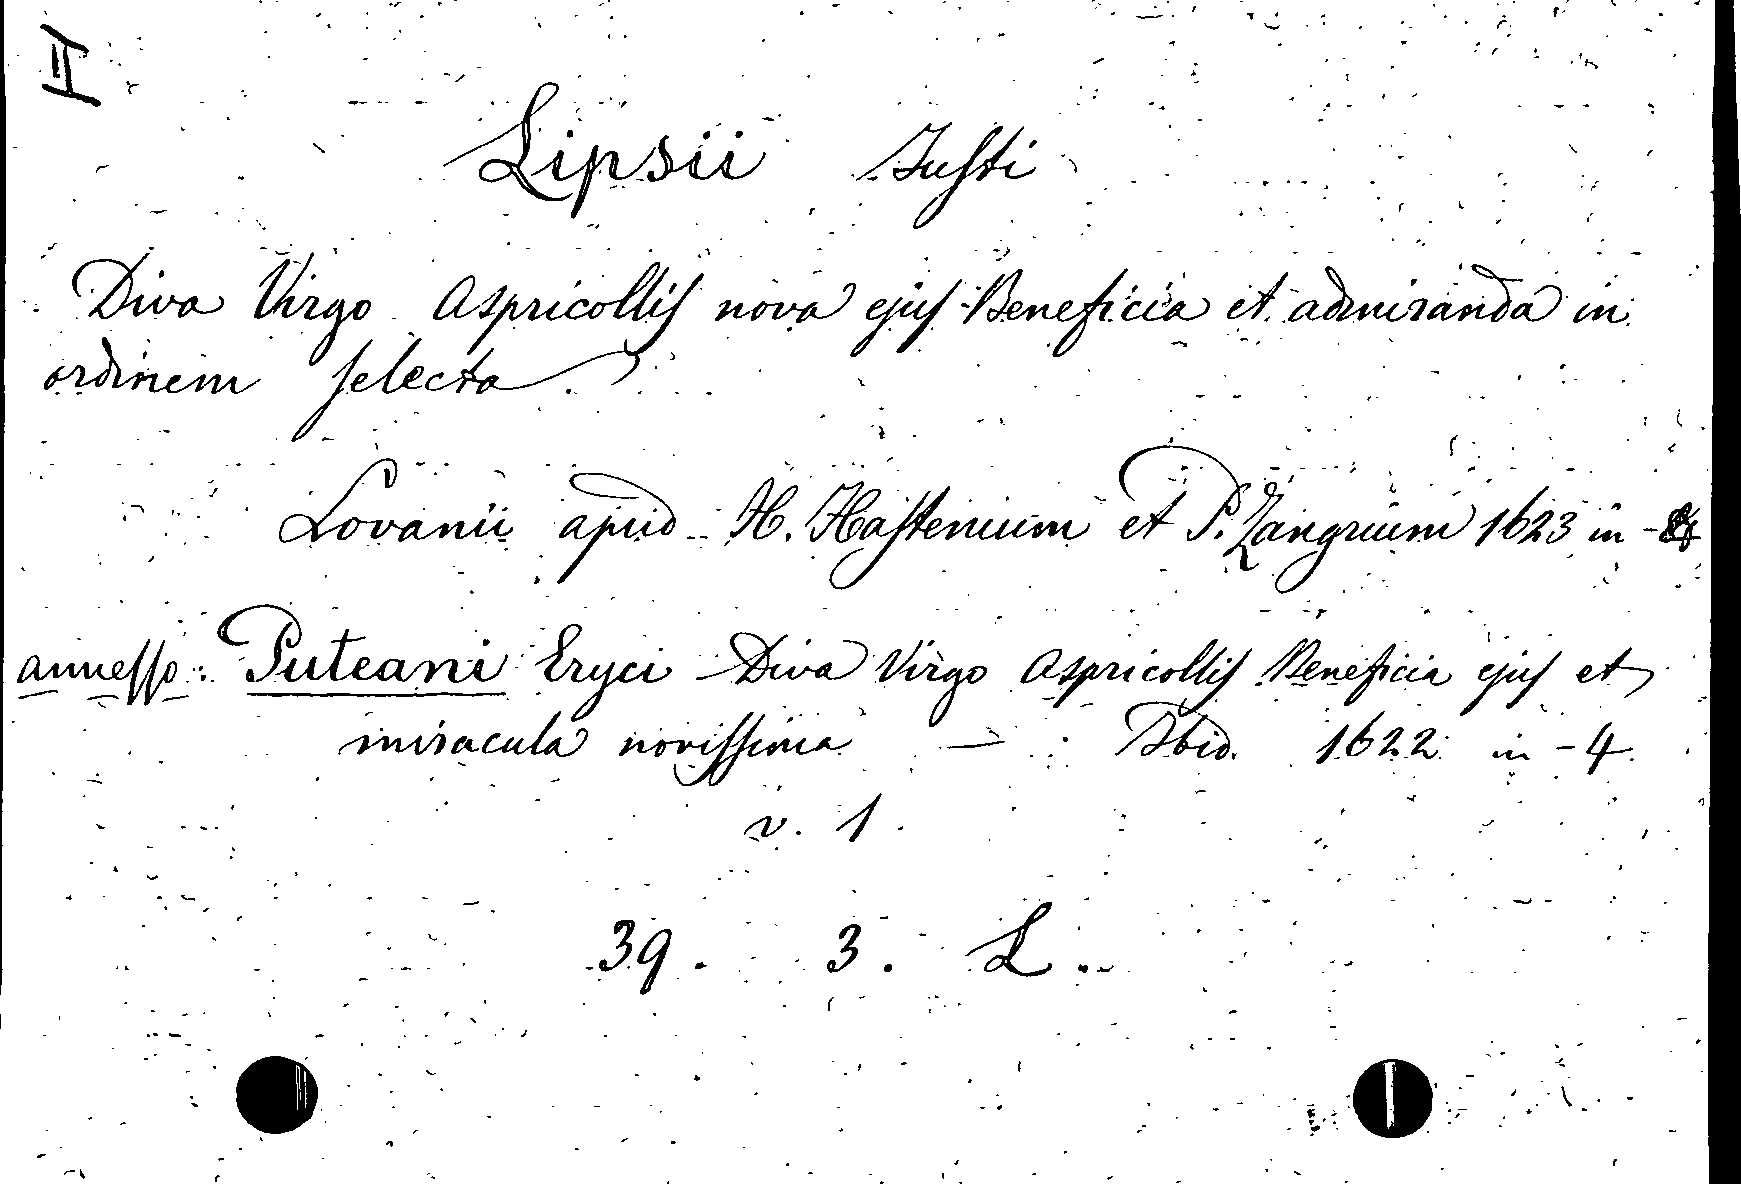 II
Lipsii Justi
Diva Virgo Aspricollis nova ejus Beneficia et admiranda in
ordinem selecta.
Lovanii apud H. Hastenium et P. Zangrium 1623 in -
annesso: Puteani Eryci Diva Virgo Aspricollis Beneficia ejus et
miracula novissima — Ibid. 1622 in - 4.
v. 1.
39. 3. L.